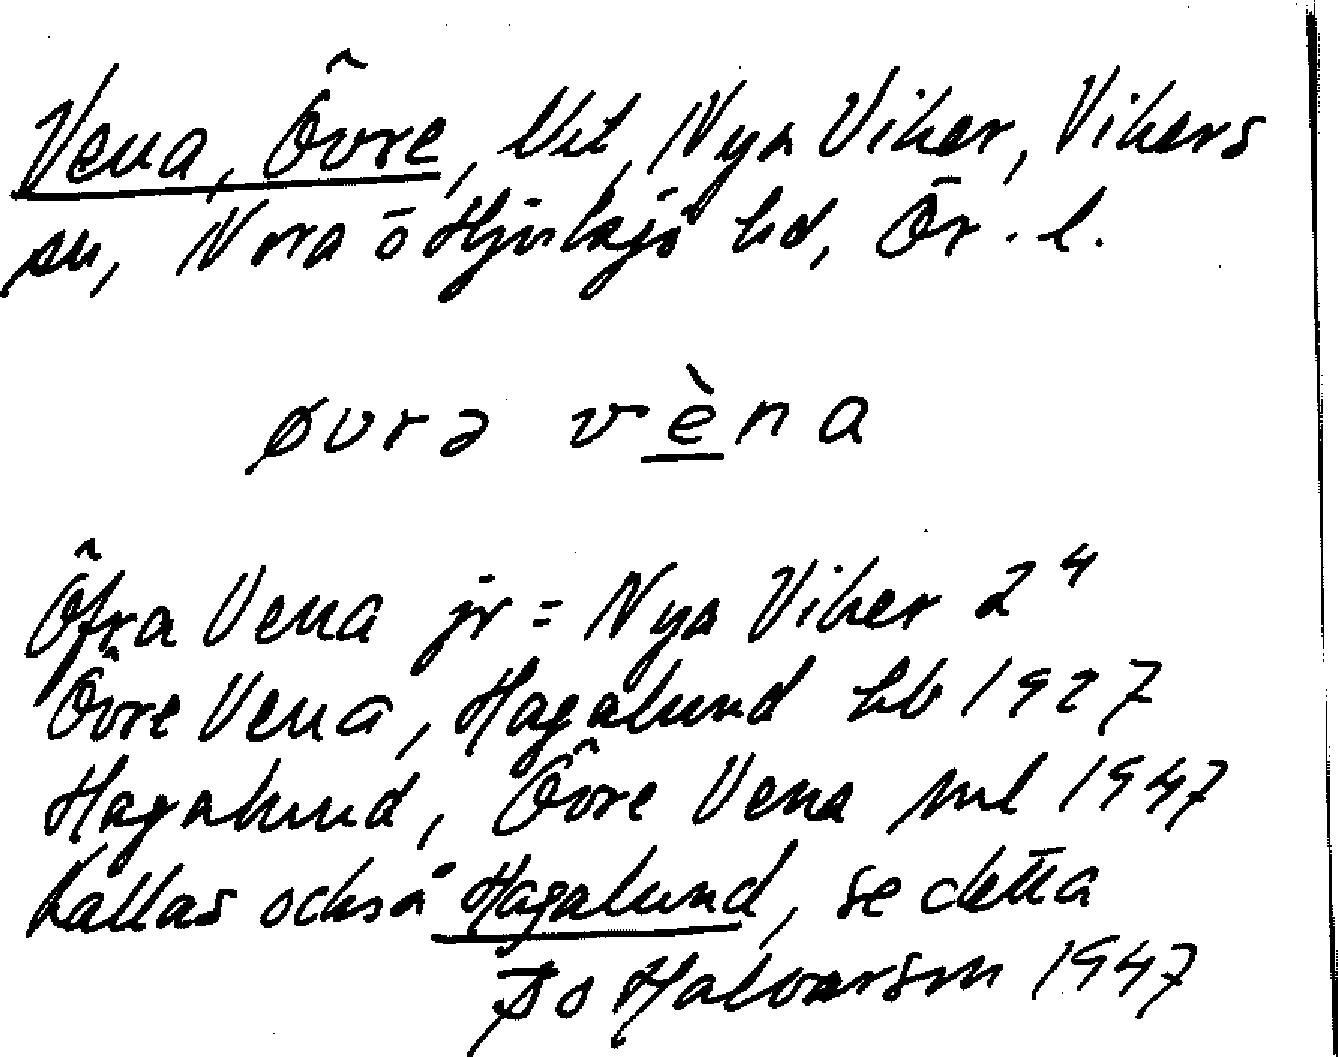 Vena, Övre, lht, Nya Viker, Vikers
sn, Nora o Hjulsjö hd, Ör. l.
øvrə vèna
Öfra Vena jr = Nya Viker 2⁴
Övre Vena, Hagalund hb 1927
Hagalund, Övre Vena ml 1947
Kallas också Hagalund, se detta
Bo Halvarson 1947